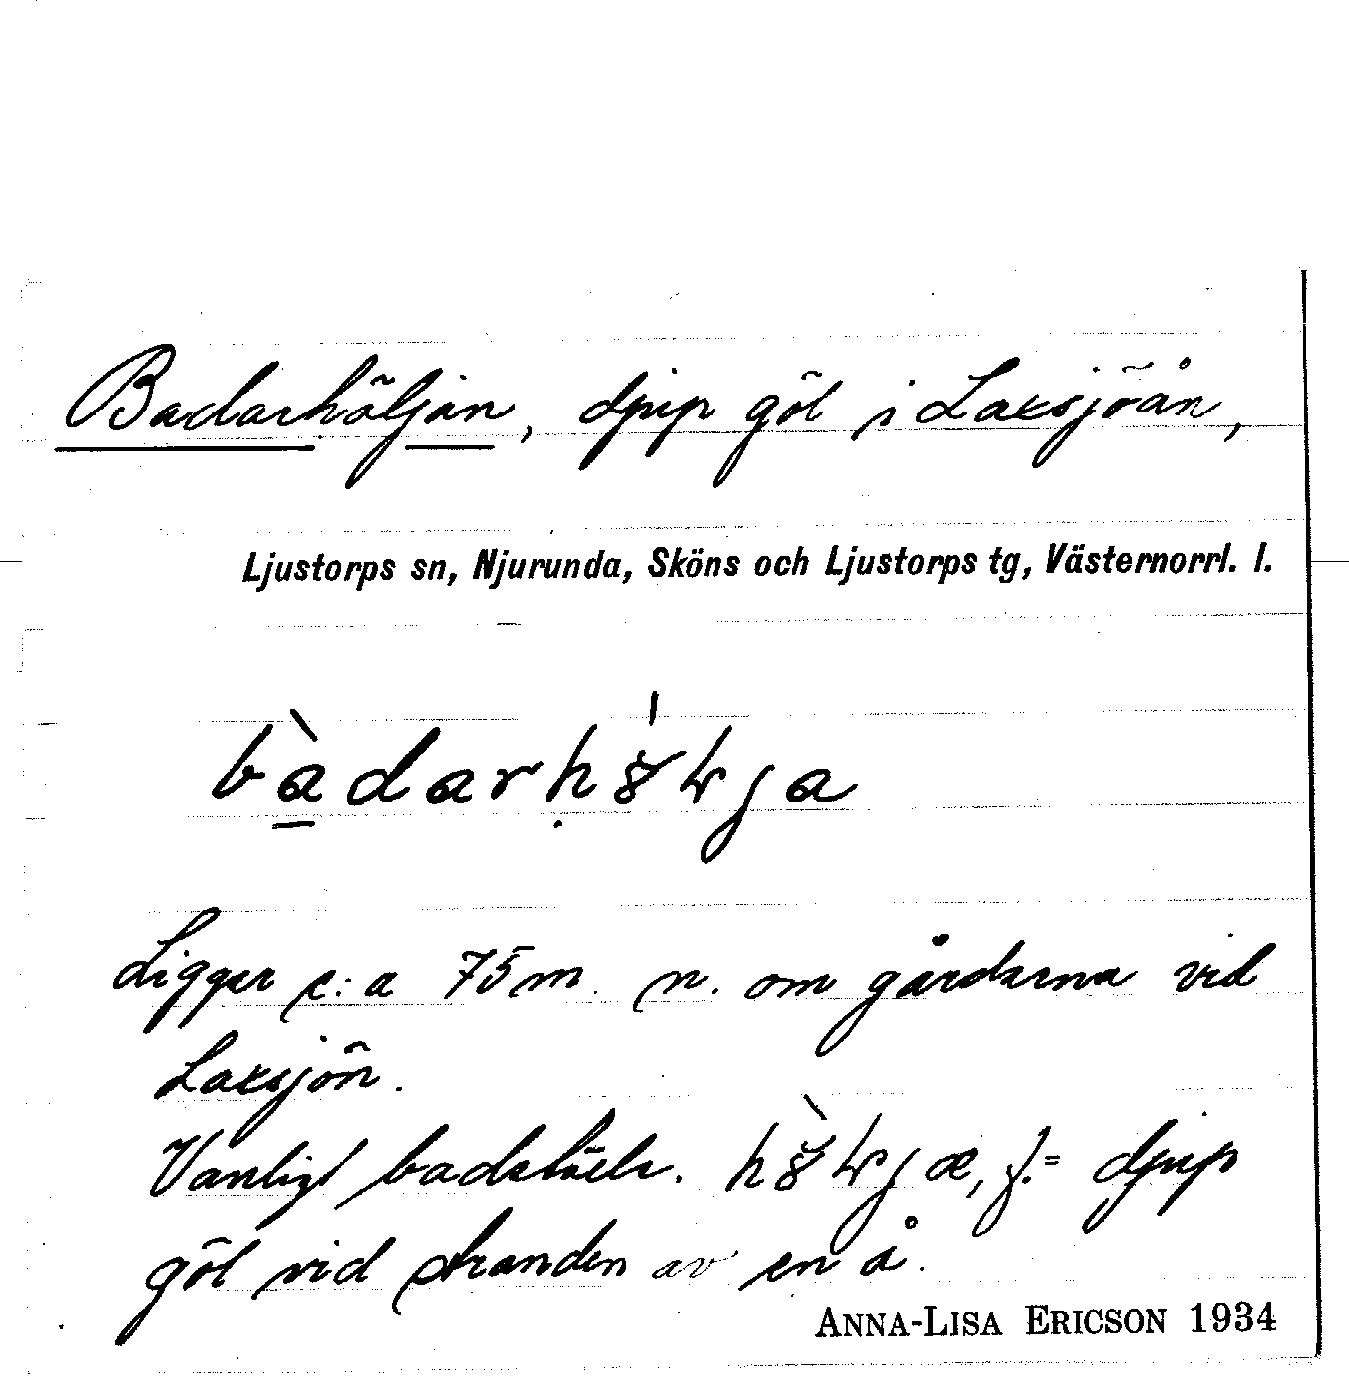 Badarhöljan, djup göl i Laxsjöån,
Ljustorps sn, Njurunda, Sköns och Ljustorps tg, Västernorrl. l.
Ligger c:a 75 m. n. om gårdarna vid
Laxsjön.
Vanligt badställe. f. = djup
göl vid stranden av en å.
ANNA-LISA ERICSON 1934